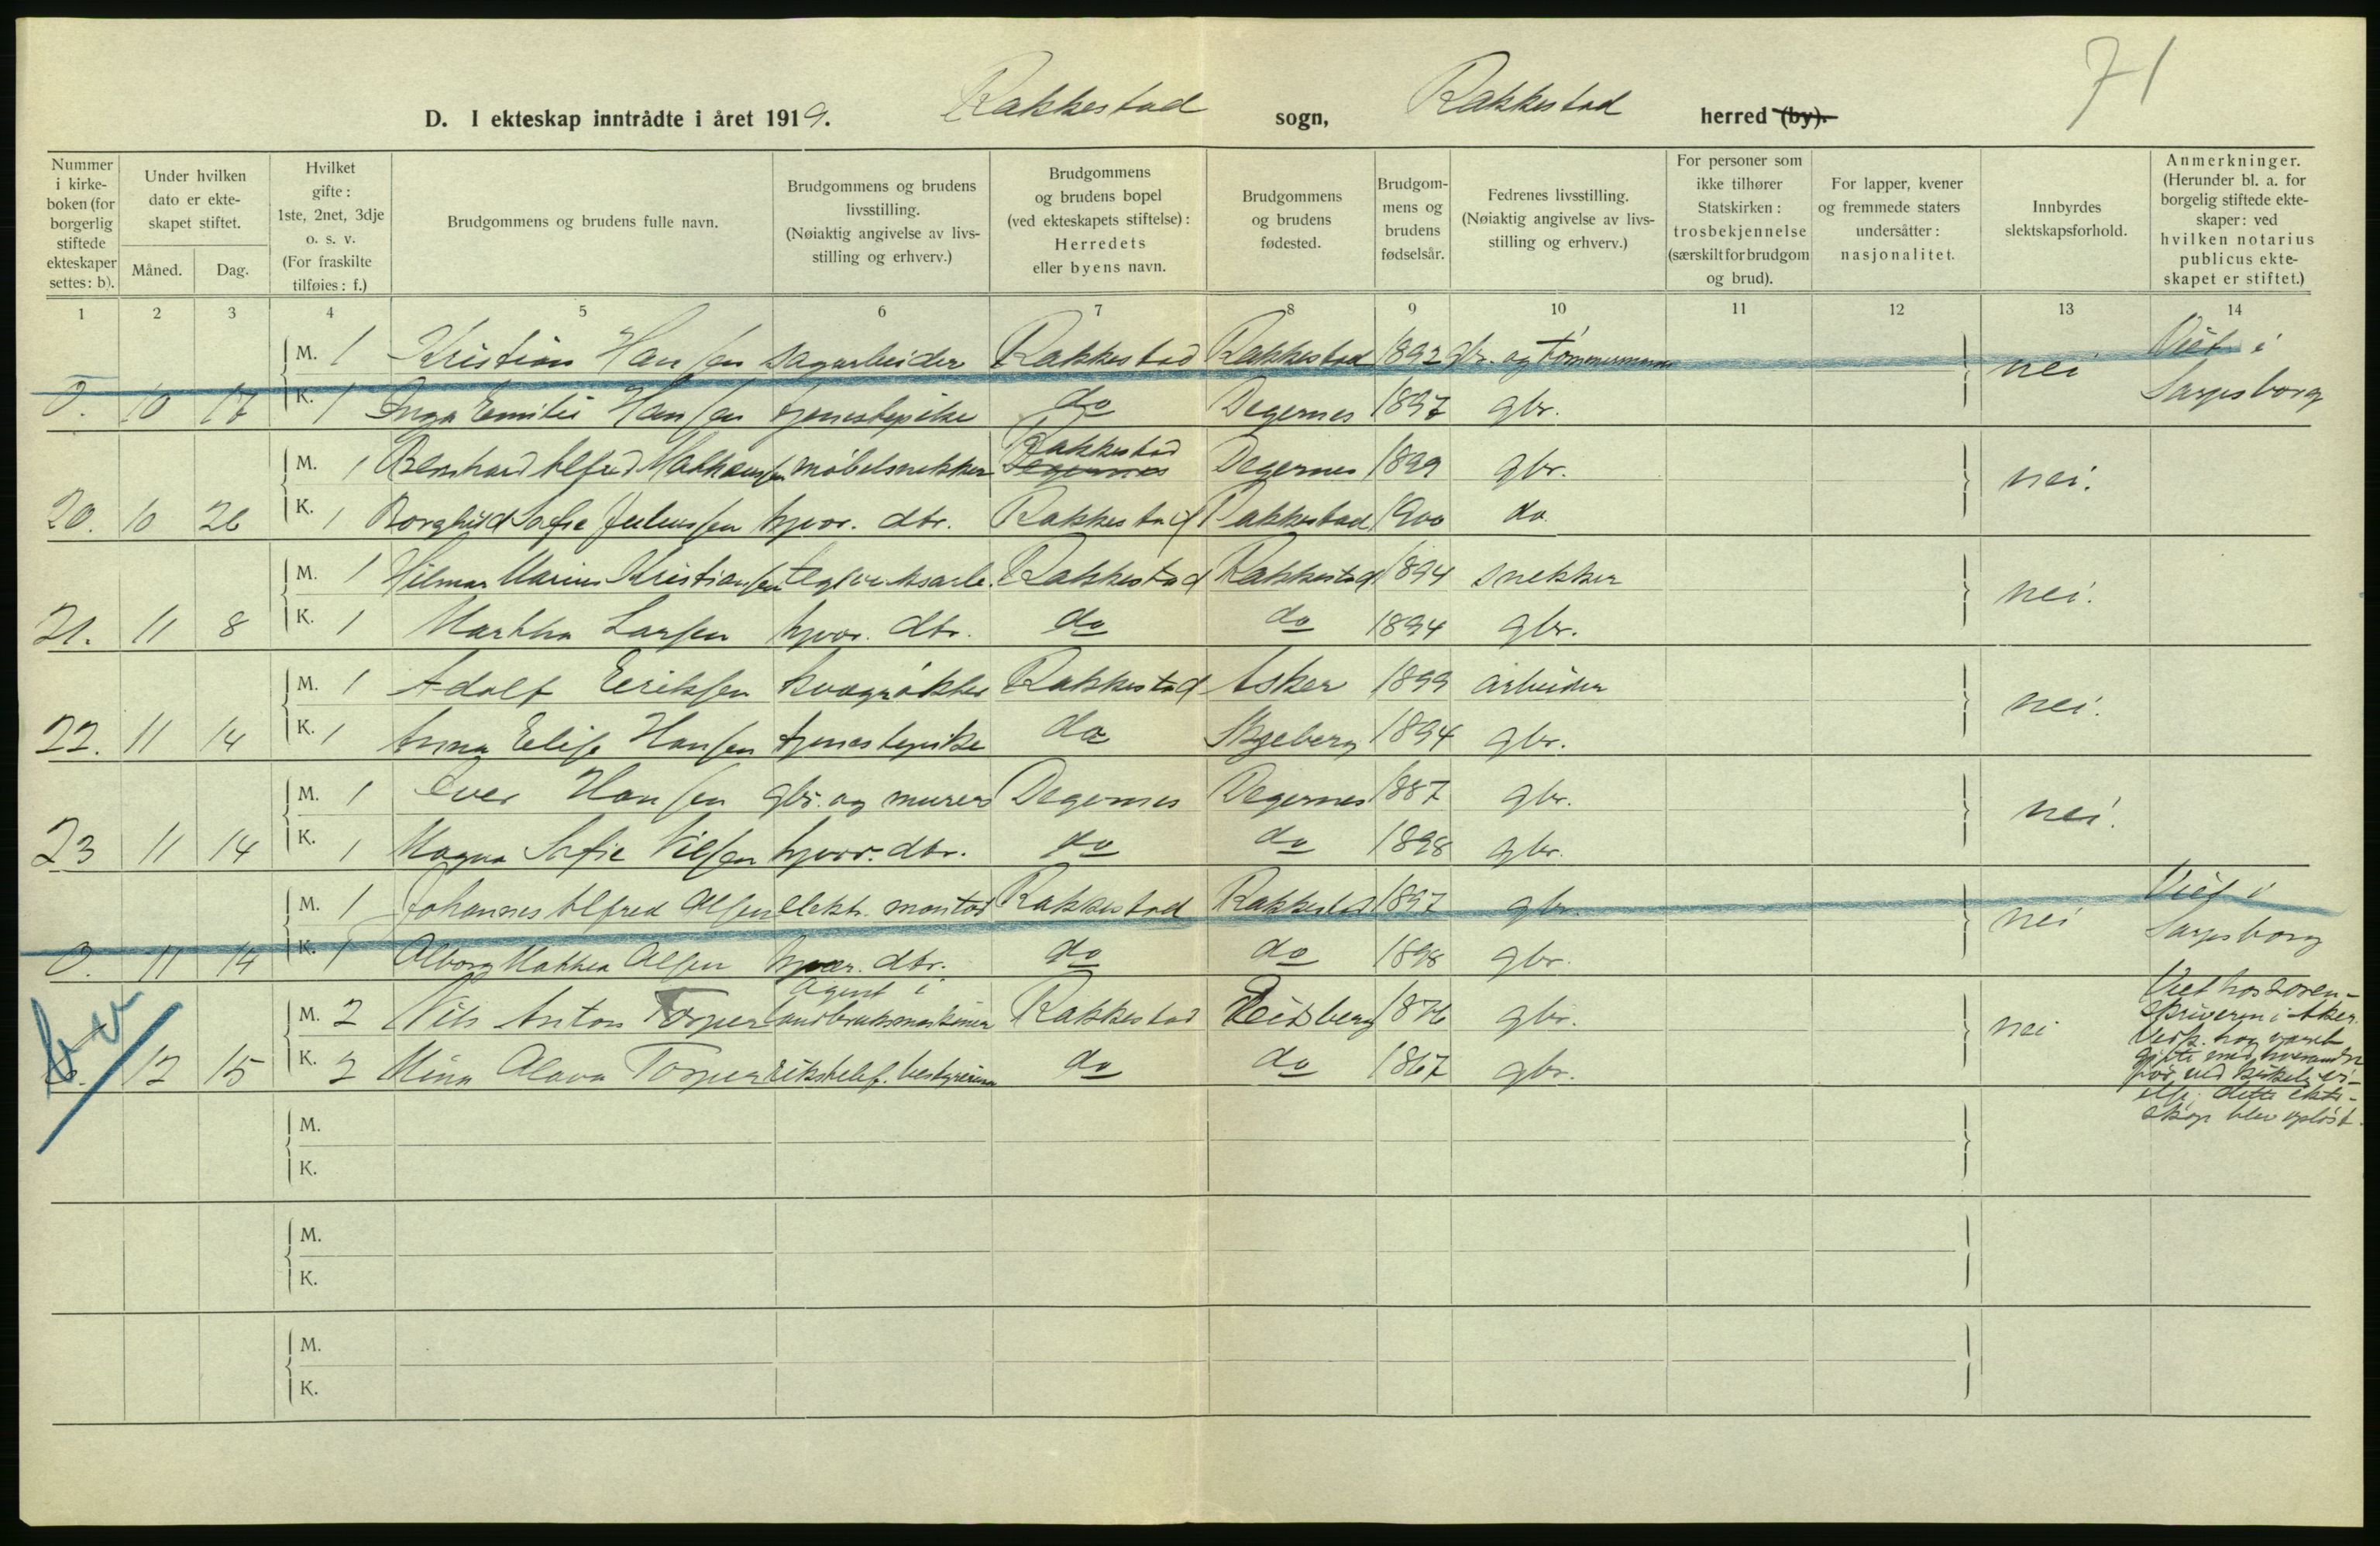 71
D. I ekteskap inntrådte i året 1919. Rakkestad sogn, Rakkestad herred (by).
Nummer i kirke-boken (for borgerlig stiftede ekteskaper settes: b).
Under hvilken dato er ekte-skapet stiftet.
Måned. Dag.
Hvilket gifte: 1ste, 2net, 3dje o. s. v. (For fraskilte tilføies: f.)
Brudgommens og brudens fulle navn.
Brudgommens og brudens livsstilling. (Nøiaktig angivelse av livs-stilling og erhverv.)
Brudgommens og brudens bopel (ved ekteskapets stiftelse): Herredets eller byens navn.
Brudgommens og brudens fødested.
Brudgom-mens og brudens fødselsår.
Fedrenes livsstilling. (Nøiaktig angivelse av livs-stilling og erhverv.)
For personer som ikke tilhører Statskirken: trosbekjennelse (særskilt for brudgom og brud).
For lapper, kvener og fremmede staters undersåtter: nasjonalitet.
Innbyrdes slektskapsforhold.
Anmerkninger. (Herunder bl. a. for borgelig stiftede ekte-skaper: ved hvilken notarius publicus ekte-skapet er stiftet.)
1 2 3 4 5 6 7 8 9 10 11 12 13 14
M. 1 Kristian Hansen sagarbeider Rakkestad Rakkestad 1892 gbr. og tømmermann nei Viet i
0. 10 17 K. 1 Inga Emilie Hansen tjenestepike do Degernes 1897 gbr. Sarpsborg
M. 1 Bernhard Alfred Mathiesen møbelsnekker Degernes Rakkestad Degernes 1899 gbr. nei.
20. 10 26 K. 1 Borghild Sofie Juliussen hjvor. dtr. Rakkestad Rakkestad 1900 do.
M. 1 Hilmar Marius Kristiansen teglverksarb. Rakkestad Rakkestad 1894 snekker nei.
21. 11 8 K. 1 Martha Larsen hjvor. dtr. do do 1894 gbr.
M. 1 Adolf Eriksen kvægrøkter Rakkestad Asker 1899 arbeider nei.
22. 11 14 K. 1 Anna Elise Hansen tjenestepike do Skjeberg 1894 gbr.
M. 1 Iver Hansen gbr. og murer Degernes Degernes 1887 gbr. nei.
23 11 14 K. 1 Magna Sofie Nilsen hjvor. dtr. do do 1898 gbr.
M. 1 Johannes Alfred Olsen elektr. montør Rakkestad Rakkestad 1897 gbr. nei Viet i
0. 11 14 K. 1 Olborg Mathea Olsen hjvær. dtr. do do 1898 gbr. Sarpsborg
M. 2 Nils Anton Torper agent i landbruksmaskiner Rakkestad Eidsberg 1876 gbr. nei Viet hos soren-
skriveren i Aker.
12 15 K. 2 Mina Olava Torper rikstelef. bestyrerinne do do 1867 gbr.
gifte med hverandre
før ved kirkelig vi-
else. Dette ekte-
skap blev opløst.
M.
K.
M.
K.
M.
K.